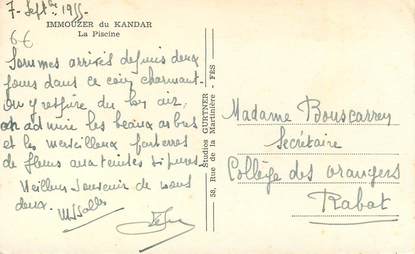 7 - Septbre 1955 -
IMMOUZER du KANDAR
La Piscine
6€
Sommes arrivés depuis deux
jours dans ce coin charmant.
On y respire du bon air,
on admire les beaux arbres
et les merveilleux parterres
de fleurs aux teintes si pures.
Meilleur souvenir de nous
deux.
Studios GURTNER
58, Rue de la Martinière - FES
Madame Bouscarrey
Secrétaire
Collège des orangers
Rabat